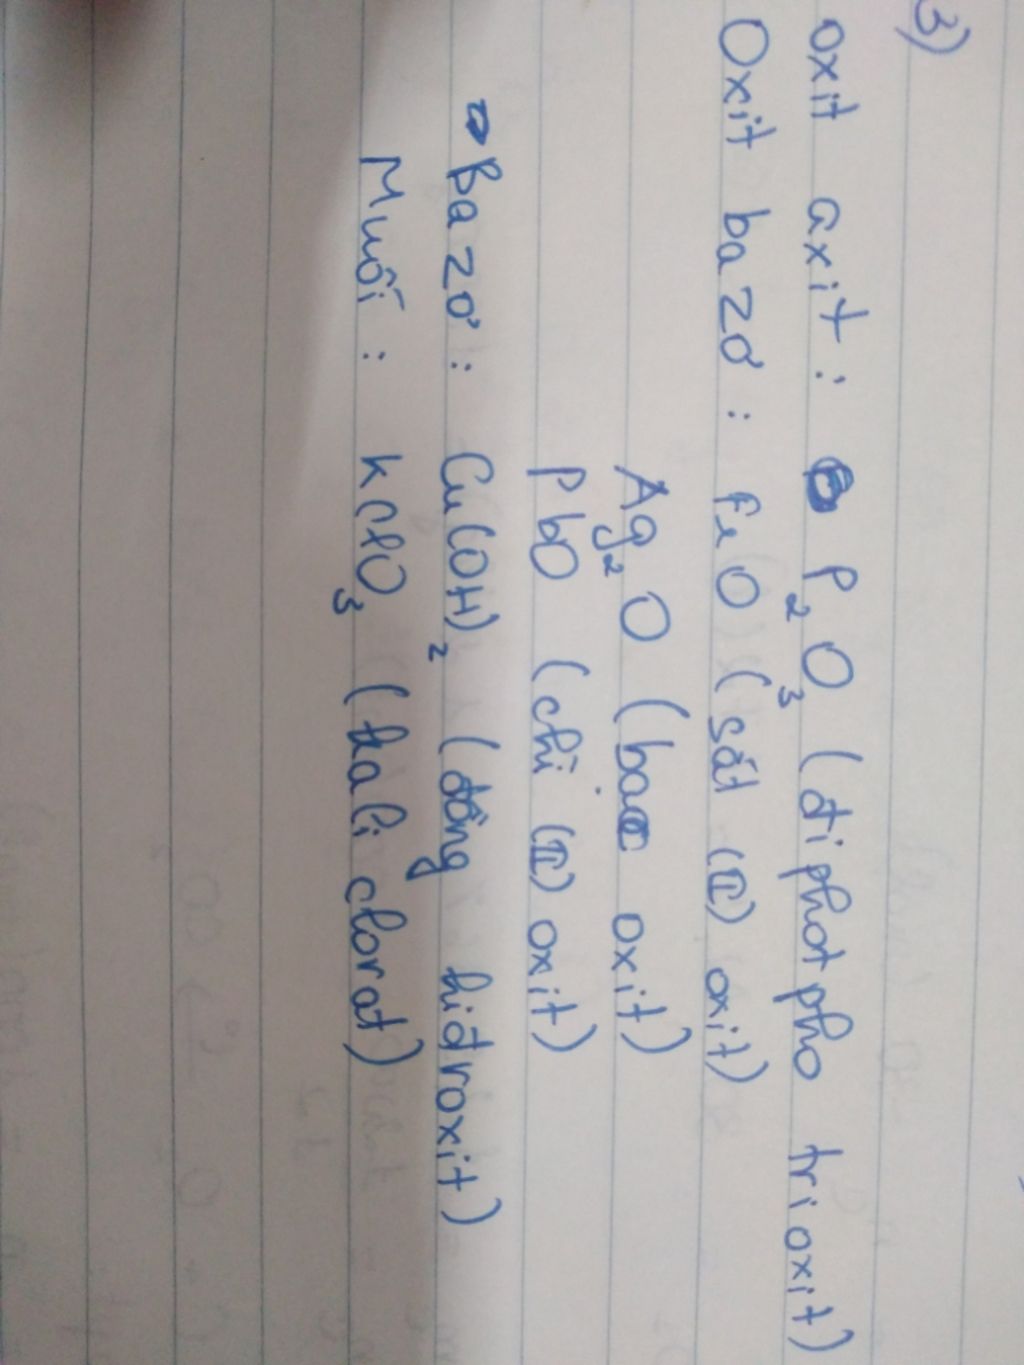 3)
oxit axit : P₂O₃ (điphotpho trioxit)
Oxit bazơ : FeO (sắt (II) oxit)
Ag₂O (bạc oxit)
PbO (chì (II) oxit)
Bazơ : Cu(OH)₂ (đồng hiđroxit)
Muối : KClO₃ (kali clorat)